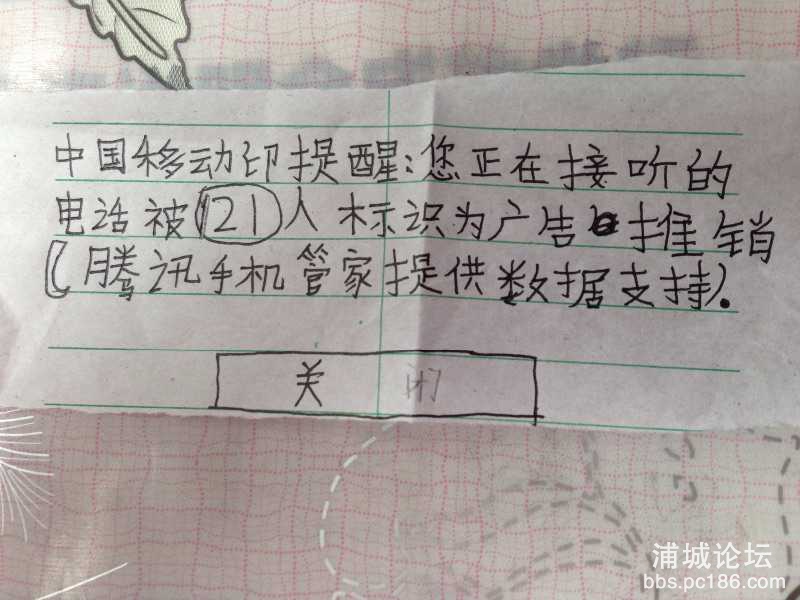 中国移动印提醒:您正在接听的
电话被121人标识为广告推销
(腾讯手机管家提供数据支持).
关闭
浦城论坛
bbs.pc186.com